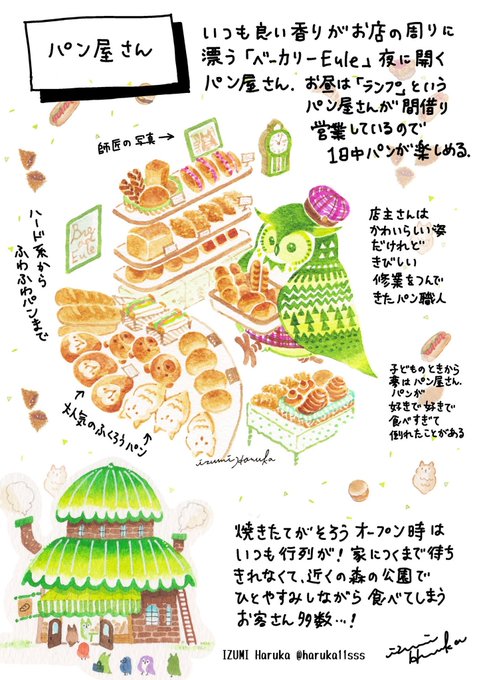 パン屋さん
いつも良い香りがお店の周りに
漂う「ベーカリーEule」夜に開く
パン屋さん. お昼は「ランプ」という
パン屋さんが間借り
営業しているので
1日中パンが楽しめる.
師匠の写真→
店主さんは
かわいらしい姿
だけれど
きびしい
修業をつんで
きたパン職人
ハード系から
ふわふわパンまで
子どものときから
夢はパン屋さん.
パンが
好きで好きで
食べすぎて
倒れたことがある
大人気のふくろうパン
izumi Haruka
焼きたてがそろうオープン時は
いつも行列が!家につくまで待ち
きれなくて、近くの森の公園で
ひとやすみしながら食べてしまう
お客さん多数…!
IZUMI Haruka @haruka11sss
izumi Haruka